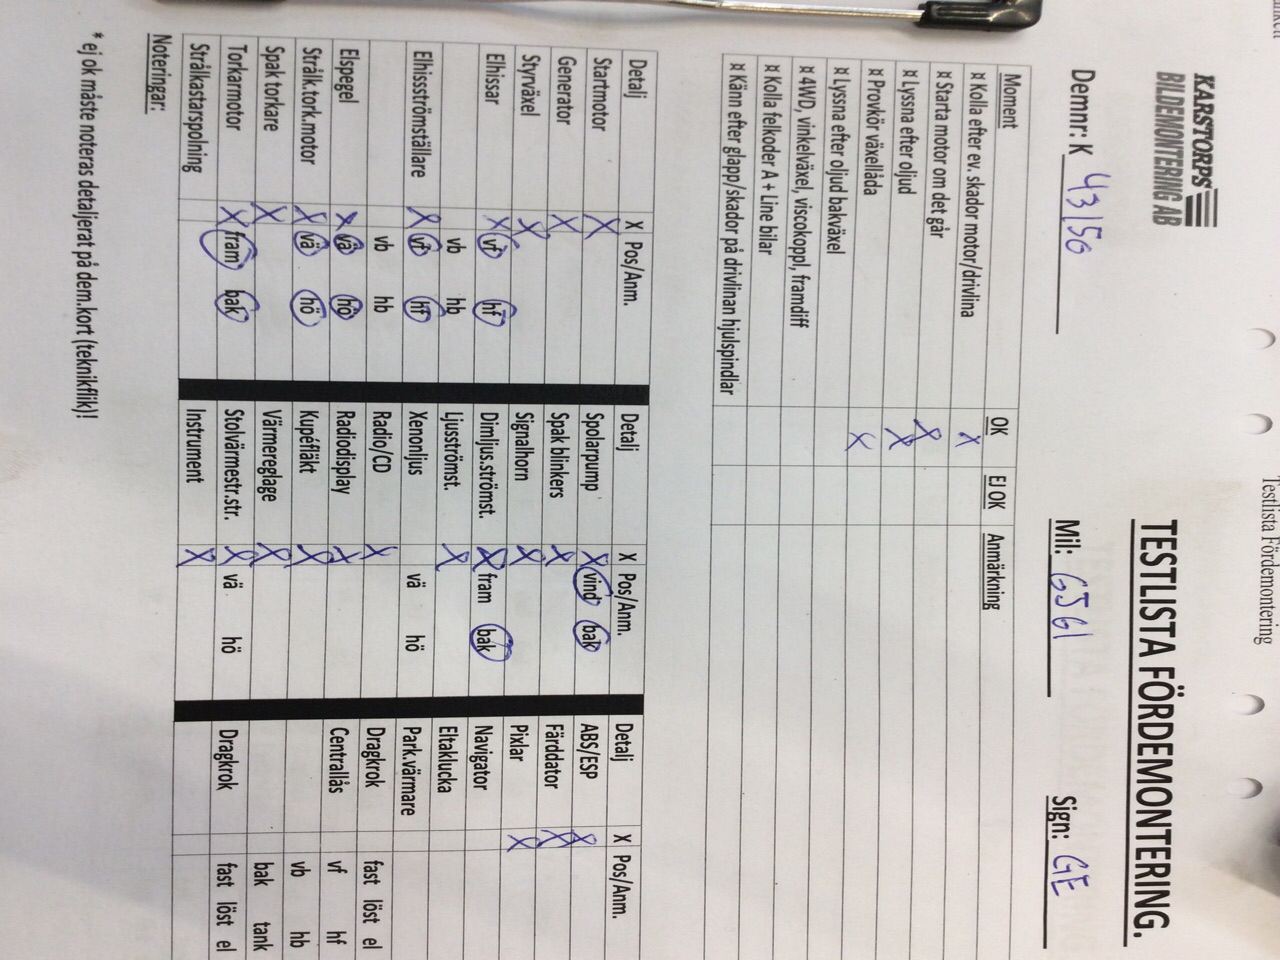 Testlista Fördemontering
KARSTORPS
BILDEMONTERING AB
TESTLISTA FÖRDEMONTERING.
Demnr: K 43156 Mil: 6561 Sign: GE
Moment OK EJ OK Anmärkning
¤ Kolla efter ev. skador motor/drivlina X
¤ Starta motor om det går X
¤ Lyssna efter oljud X
¤ Provkör växellåda X
¤ Lyssna efter oljud bakväxel
¤ 4WD, vinkelväxel, viscokoppl, framdiff
¤ Kolla felkoder A + Line bilar
¤ Känn efter glapp/skador på drivlinan hjulspindlar
Detalj X Pos/Anm. Detalj X Pos/Anm. Detalj X Pos/Anm.
Startmotor X Spolarpump X vind bak ABS/ESP X
Generator X Spak blinkers X Färddator X
Styväxel X Signalhorn X Pixlar X
Elhissar X vf hf Dimljus.strömst. X fram bak Navigator
vb hb Ljusströmst. X Eltaklucka
Elhissströmställare X vf hf Xenonljus vä hö Park.värmare
vb hb Radio/CD X Dragkrok fast löst el
Elspegel X vä hö Radiodisplay X Centrallås vf hf
Strålk.tork.motor X vä hö Kupéfläkt X vb hb
Spak torkare X Värmereglage X bak tank
Torkarmotor X fram bak Stolvärmestr.str. X vä hö Dragkrok fast löst el
Strålkastarspolning Instrument X
Noteringar:
* ej ok måste noteras detaljerat på dem.kort (teknikflik)!